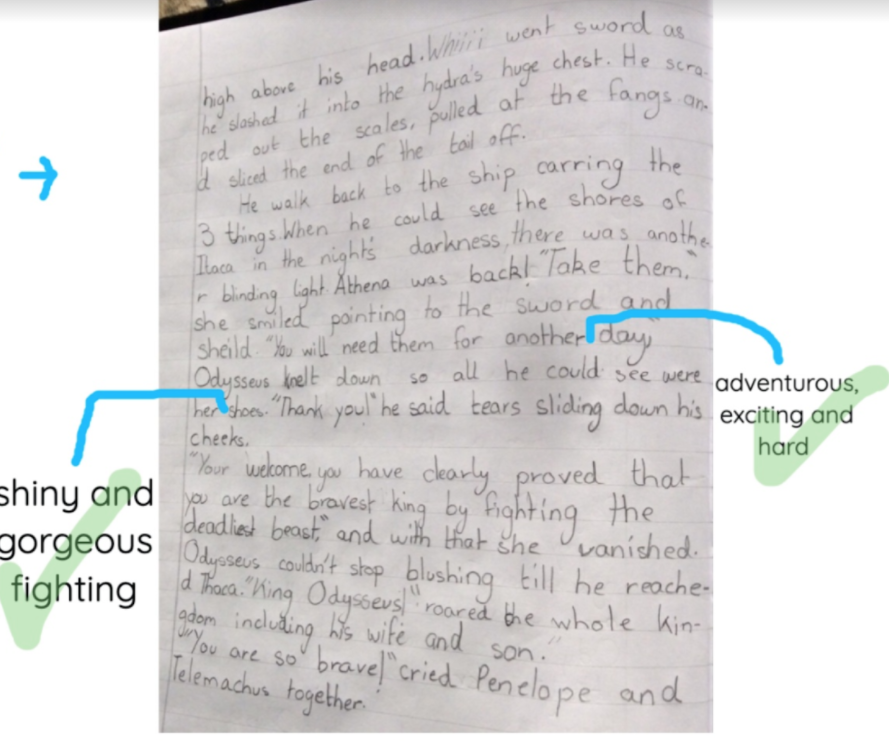 high above his head. Whiiii went sword as
he slashed it into the hydra's huge chest. He scra-
ped out the scales, pulled at the fangs an-
d sliced the end of the tail off.
He walk back to the ship carring the
3 things. When he could see the shores of
Itaca in the night's darkness, there was anothe-
r blinding light. Athena was back! "Take them,"
she smiled pointing to the sword and
sheild. "You will need them for another day"
Odysseus knelt down so all he could see were
her shoes. "Thank you!" he said tears sliding down his
cheeks.
"Your welcome, you have clearly proved that
you are the bravest king by fighting the
deadliest beast," and with that she vanished.
Odysseus couldn't stop blushing till he reache-
d Ithaca. "King Odysseus!" roared the whole kin-
gdom including his wife and son."
"You are so brave!" cried Penelope and
Telemachus together.
adventurous,
exciting and
hard
shiny and
gorgeous
fighting